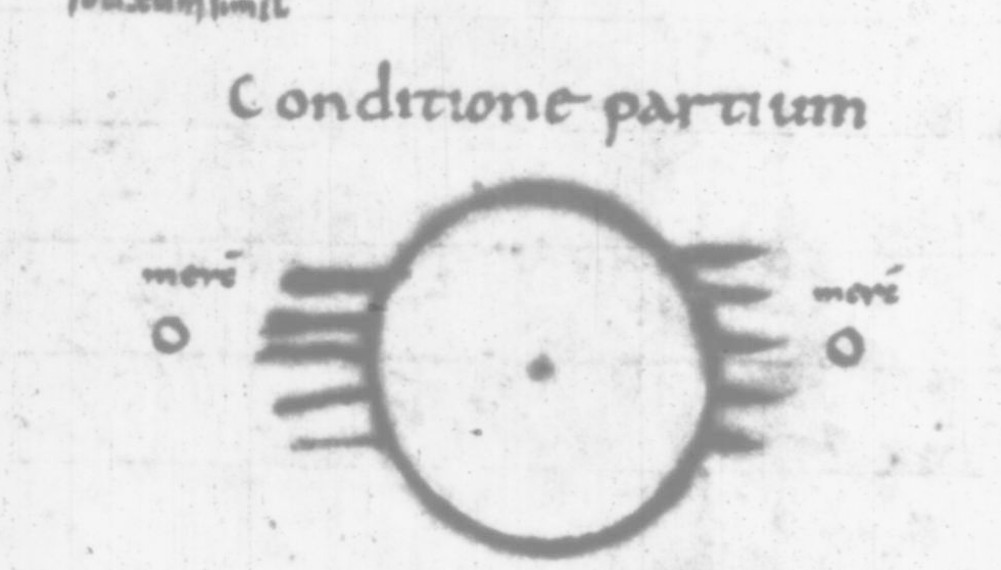 Conditione partium
meré meré
O O